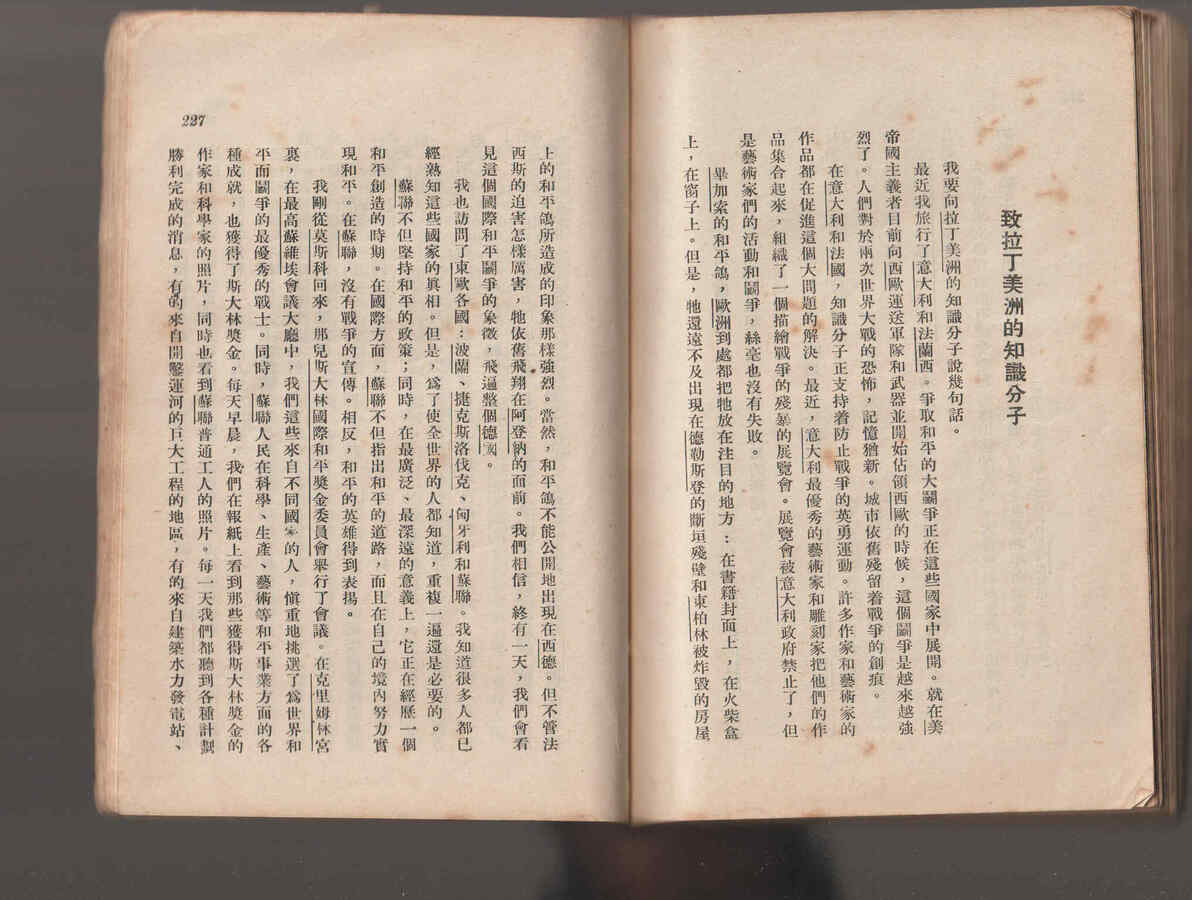 致拉丁美洲的知識分子
我要向拉丁美洲的知識分子說幾句話。
最近我旅行了意大利和法蘭西。爭取和平的大鬭爭正在這些國家中展開。就在美
帝國主義者目前向西歐運送軍隊和武器並開始佔領西歐的時候，這個鬭爭是越來越強
烈了。人們對於兩次世界大戰的恐怖，記憶猶新。城市依舊殘留着戰爭的創痕。
在意大利和法國，知識分子正支持着防止戰爭的英勇運動。許多作家和藝術家的
作品都在促進這個大問題的解決。最近，意大利最優秀的藝術家和雕刻家把他們的作
品集合起來，組織了一個描繪戰爭的殘暴的展覽會。展覽會被意大利政府禁止了，但
是藝術家們的活動和鬭爭，絲毫也沒有失敗。
畢加索的和平鴿，歐洲到處都把牠放在注目的地方：在書籍封面上，在火柴盒
上，在窗子上。但是，牠還遠不及出現在德勒斯登的斷垣殘壁和東柏林被炸毀的房屋
上的和平鴿所造成的印象那樣強烈。當然，和平鴿不能公開地出現在西德。但不管法
西斯的迫害怎樣厲害，牠依舊飛翔在阿登納的面前。我們相信，終有一天，我們會看
見這個國際和平鬭爭的象徵，飛遍整個德國。
我也訪問了東歐各國：波蘭、捷克斯洛伐克、匈牙利和蘇聯。我知道很多人都已
經熟知這些國家的真相。但是，爲了使全世界的人都知道，重複一遍還是必要的。
蘇聯不但堅持和平的政策；同時，在最廣泛、最深遠的意義上，它正在經歷一個
和平創造的時期。在國際方面，蘇聯不但指出和平的道路，而且在自己的境內努力實
現和平。在蘇聯，沒有戰爭的宣傳。相反，和平的英雄得到表揚。
我剛從莫斯科回來，那兒斯大林國際和平獎金委員會舉行了會議。在克里姆林宮
裏，在最高蘇維埃會議大廳中，我們這些來自不同國的人，愼重地挑選了爲世界和
平而鬭爭的最優秀的戰士。同時，蘇聯人民在科學、生產、藝術等和平事業方面的各
種成就，也獲得了斯大林獎金。每天早晨，我們在報紙上看到那些獲得斯大林獎金的
作家和科學家的照片，同時也看到蘇聯普通工人的照片。每一天我們都聽到各種計劃
勝利完成的消息，有的來自開鑿運河的巨大工程的地區，有的來自建築水力發電站、
227